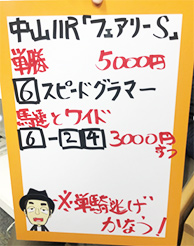 中山11R「フェアリーS」
単勝 5000円
6 スピードグラマー
馬連とワイド
6-24 3000円
ずつ
※単騎逃げ
かなう!